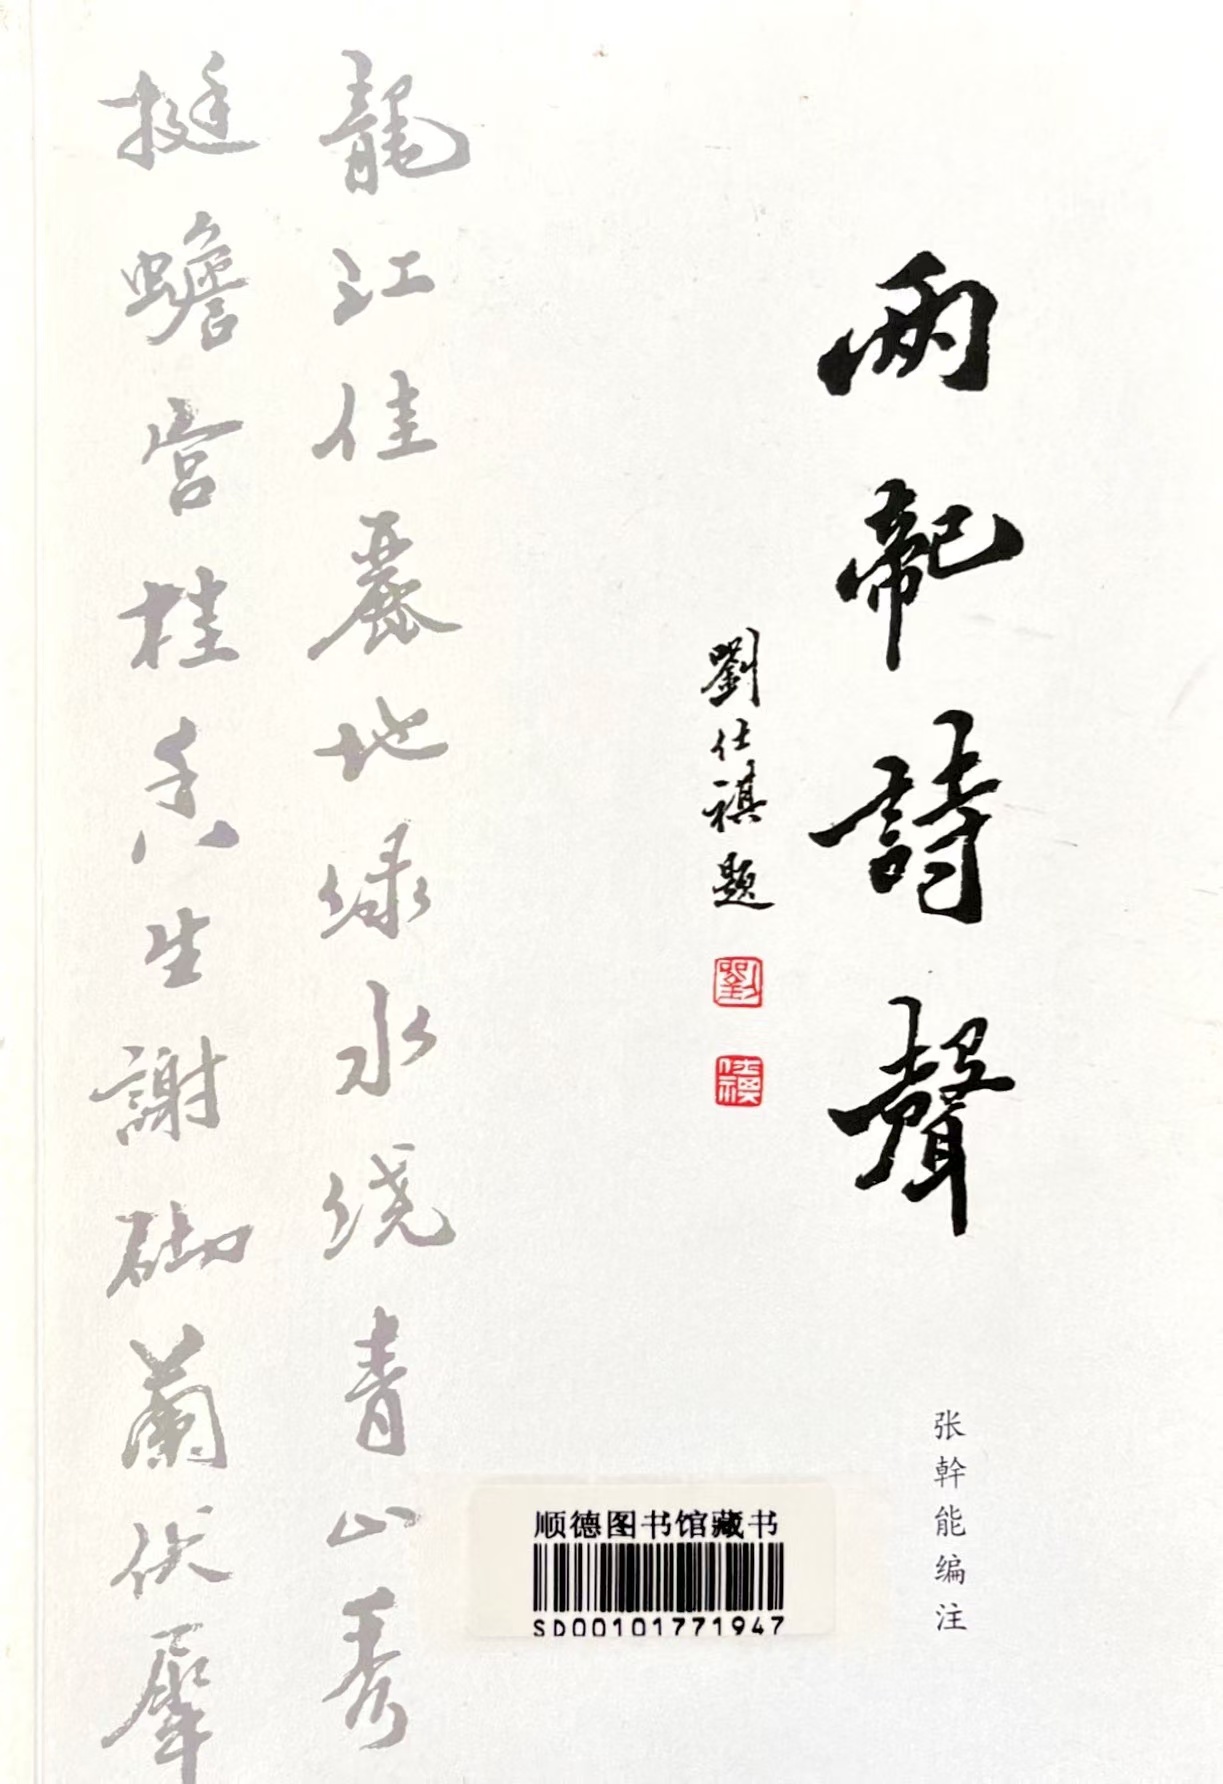 兩龍詩聲
劉仕祺題
劉
仕祺
张幹能编注
龍江佳麗地绿水绕青山秀
挺蟾宫桂香生謝砌蘭伏犀
顺德图书馆藏书
SD00101771947